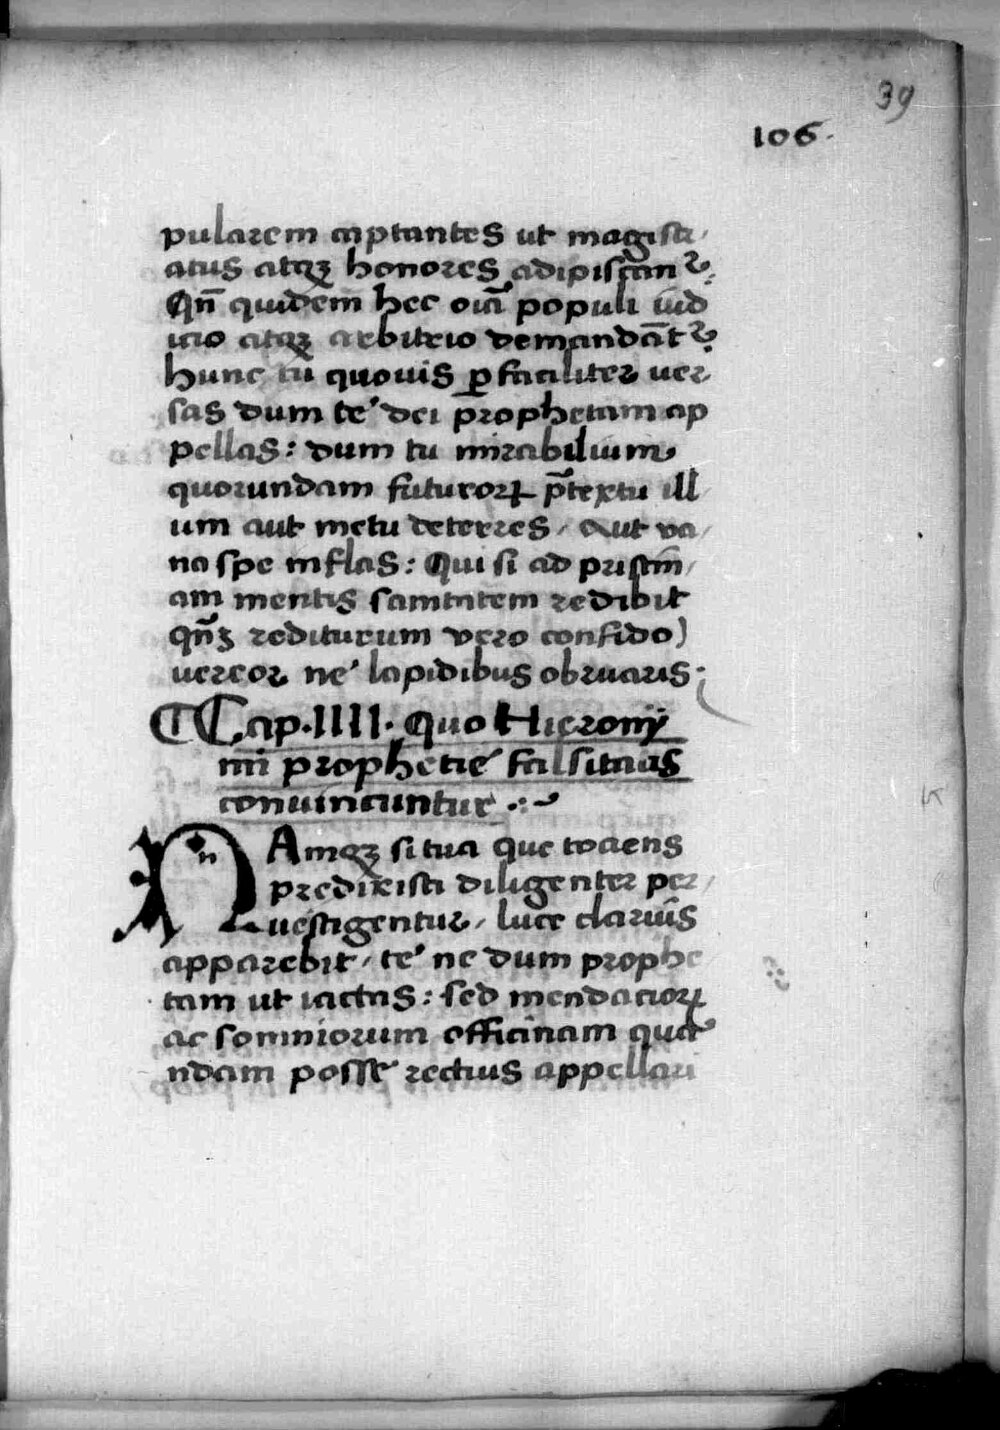 39
106.
pularem captantes ut magistr,
atus atqꝫ honores adipiscanꝛ.
Qn̄ quidem hec oiā populi iud
icio atqꝫ arbitrio demandātꝛ.
hunc tu quouis ꝑfaciliter ver
sas dum te' dei prophetam ap
pellas: dum tu mirabilium
quorundam futurorꝝ p̄textu ill
um aut metu deterres, aut va,
na spe inflas: Qui si ad pristin,
am mentis sanitatem redibit
qn̄qꝫ rediturum vero confido)
uereor ne' lapidibus obruaris:
¶ Cap. IIII. quo Hierony
mi prophetie' falsitatis
conuincuntur .:~
NAmqꝫ si tua que tociens
predixisti diligenter per,
uestigentur, luce clarius
apparebit, te' ne dum prophe
tam ut iactas: sed mendaciorꝝ
ac somniorum officinam qua
ndam posse' rectius appellari